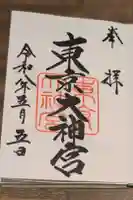 奉拝
東京大神宮
令和年五月五日